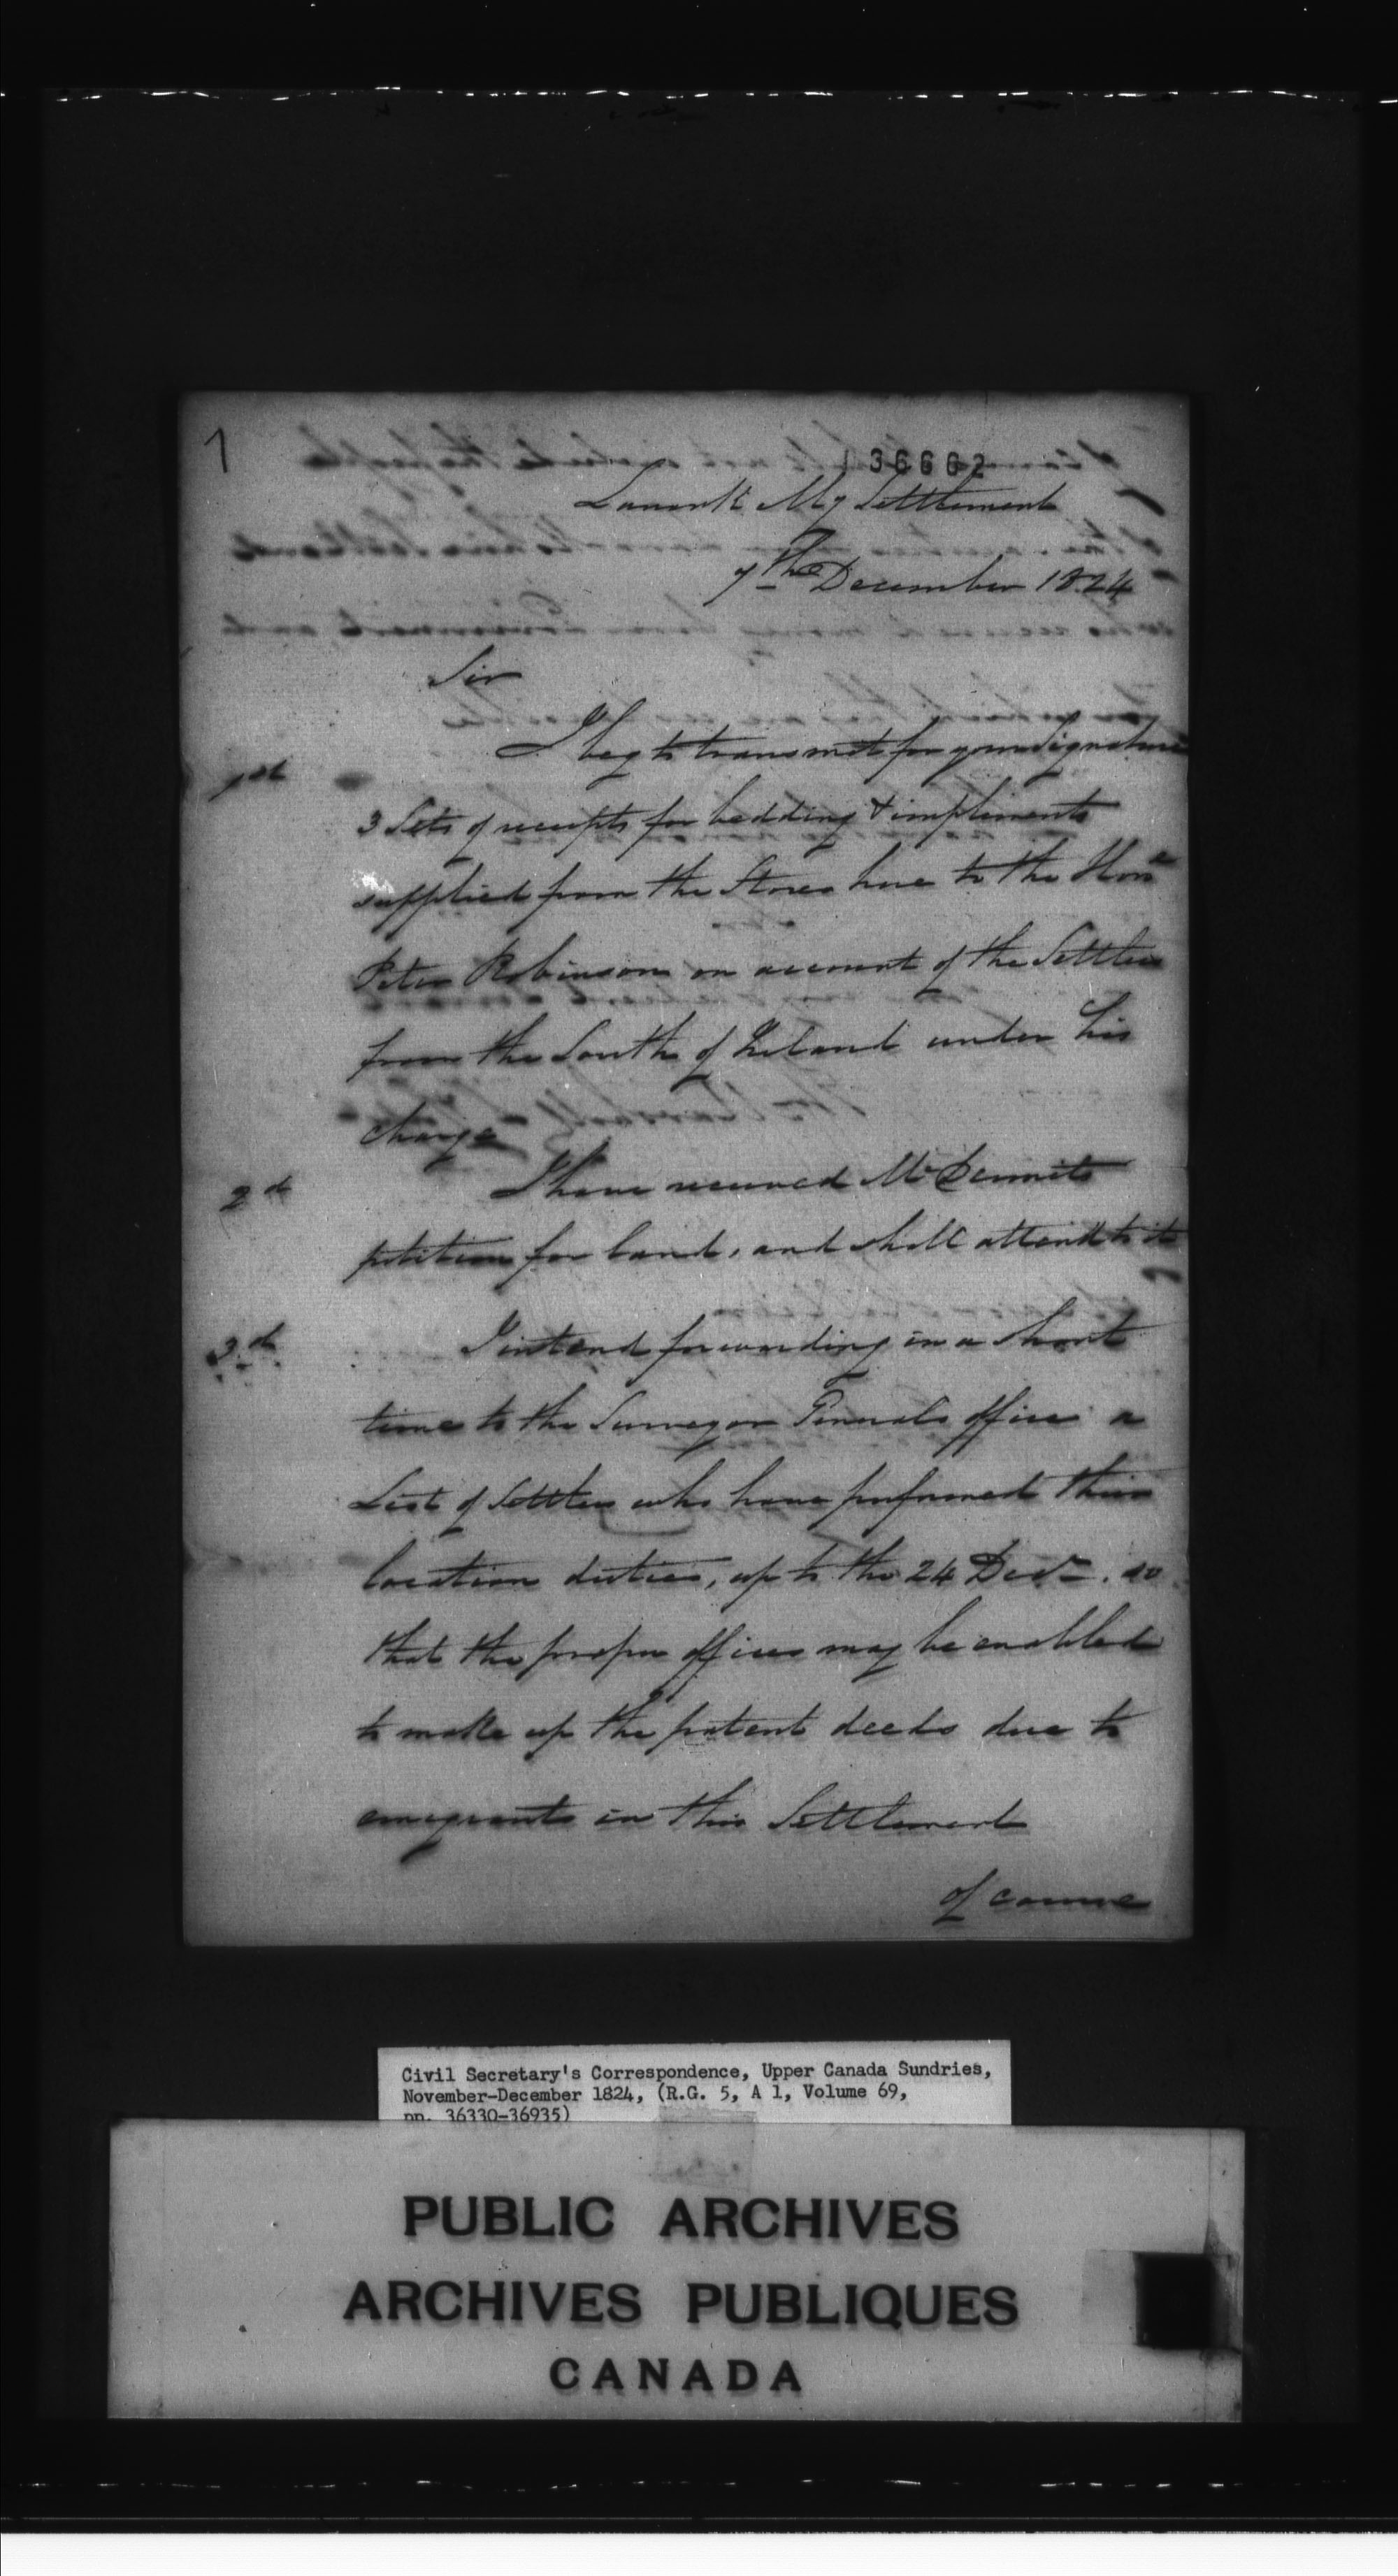 7
36662
Lanark My Settlement
7th December 1824
Sir
1st
I beg to transmit for your Signature
3 Sets of receipts for bedding & impliments
supplied from the Stores here to the Honle
Peter Robinson on account of the Settlers
from the South of Ireland under his
charge
2d
I have received Mr
petition for land, and shall attend to it
3d
I intend forwarding in a short
time to the Surveyor Generals office a
List of Settlers who have performed their
location duties, up to the 24 Decr. so
that the proper officer may be enabled
to make up the patent deeds due to
emigrants in this Settlement
of course
Civil Secretary's Correspondence, Upper Canada Sundries,
November-December 1824, (R.G. 5, A 1, Volume 69,
pp. 36330-36935)
PUBLIC ARCHIVES
ARCHIVES PUBLIQUES
CANADA